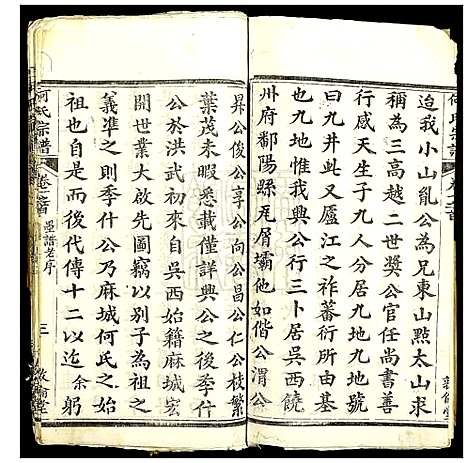 迨我小山亂公為兄東山點太山求
稱為三高越二世獎公官任尚書善
行感天生子九人分居九地九地號
曰九井此又廬江之祚蕃衍所由基
也九地惟我興公行三十七居江西饒
州府鄱陽縣瓦屑壩他如偕公渭公
昇公俊公享公向公昌公仁公枝繁
葉茂未暇悉載僅詳興公之後季什
公於洪武初來自吳西始籍麻城宏
開世業大啟先圖竊以別子為祖之
義準之則季什公乃麻城何氏之始
祖也而後代傳十二以迄余躬
何氏宗譜
卷之首
墨譜老序
三
敦倫堂